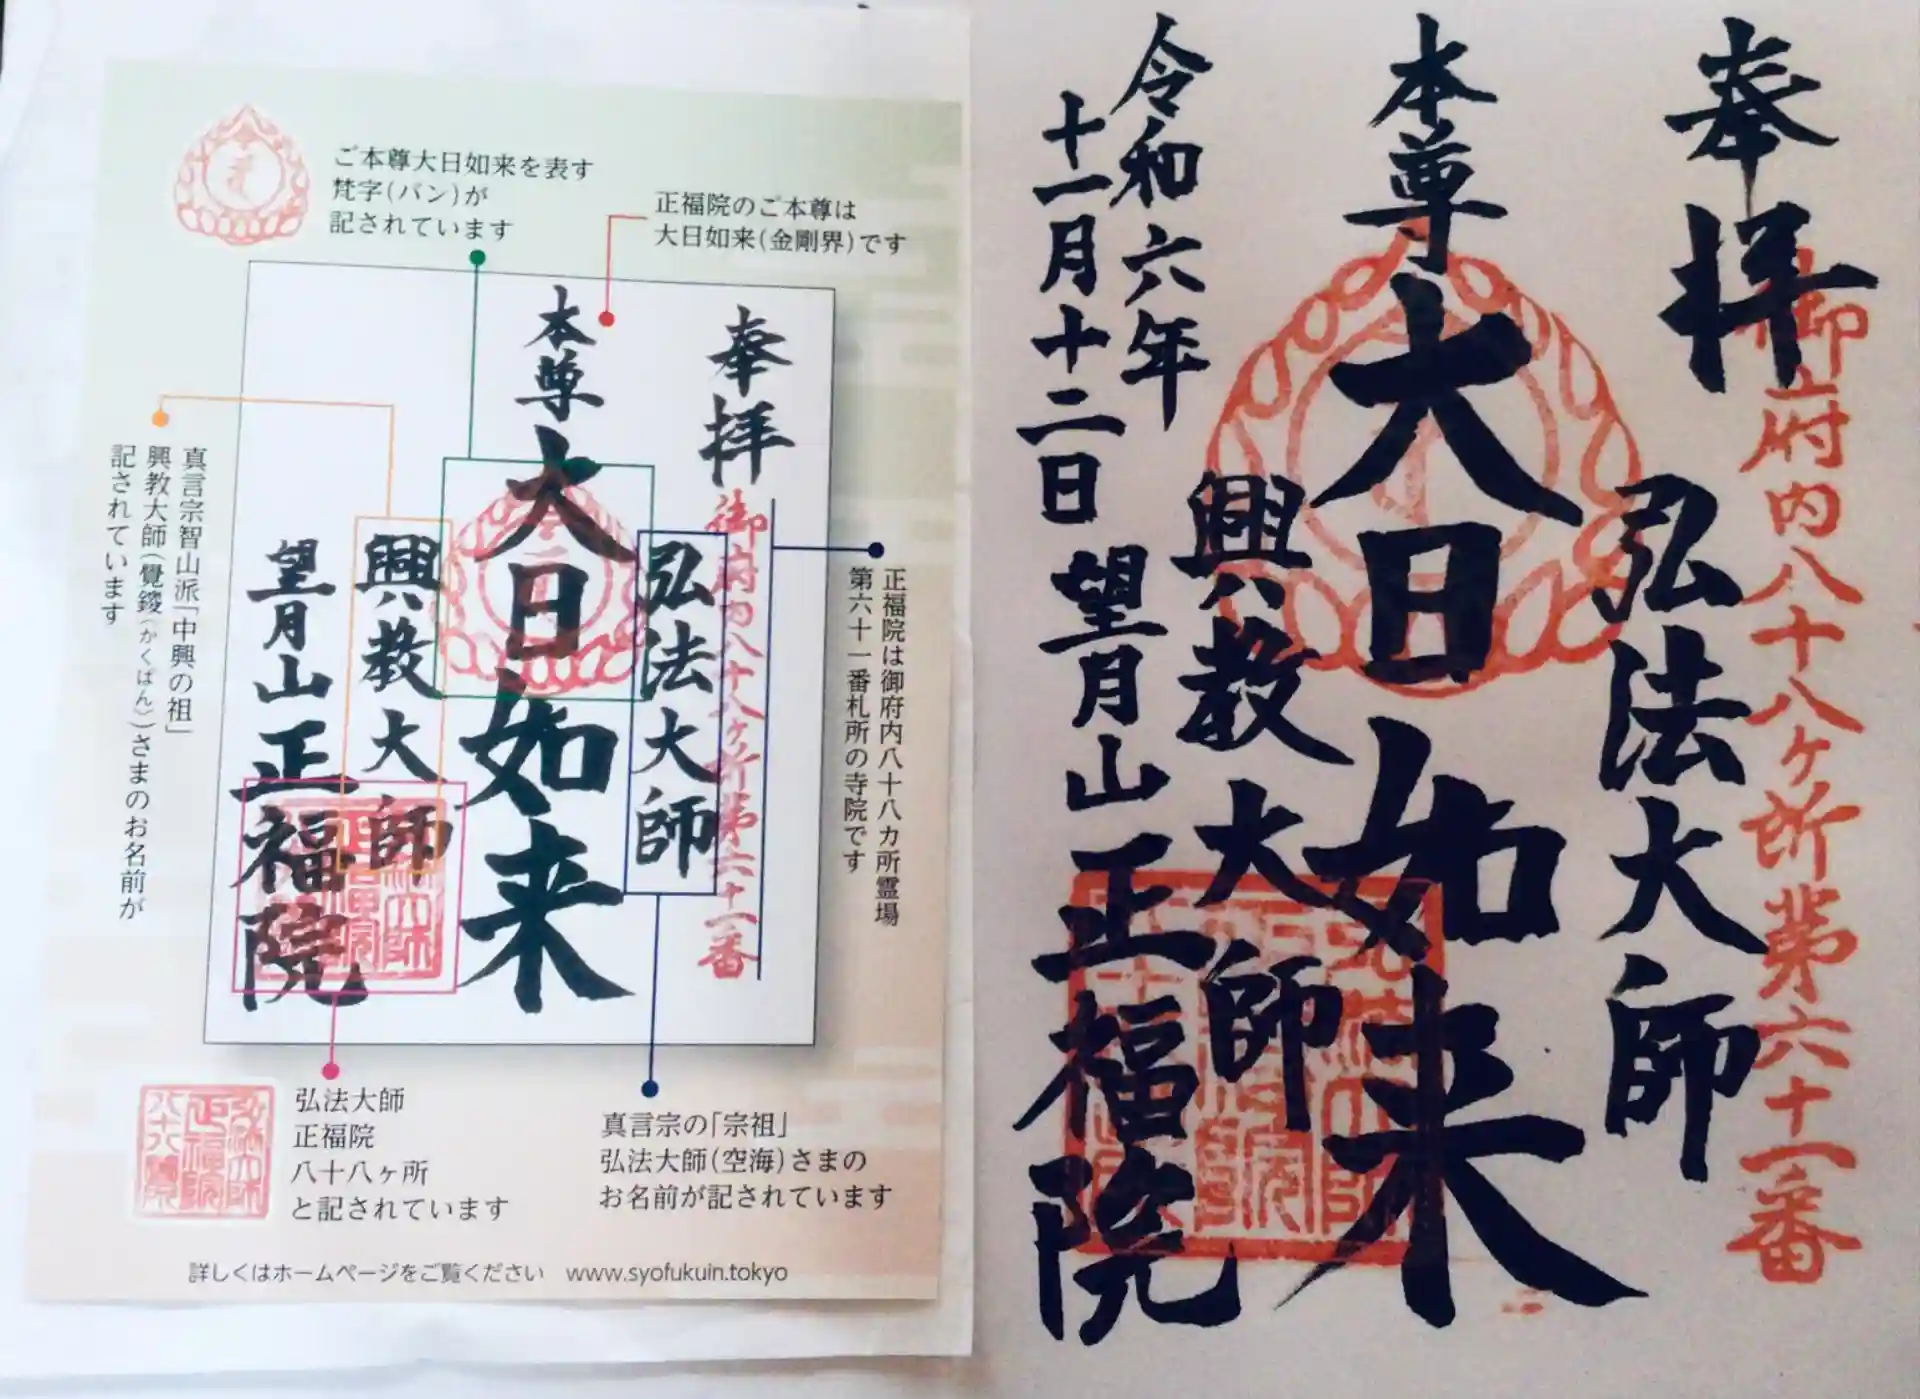 ご本尊大日如来を表す
梵字(バン)が
記されています
正福院のご本尊は
大日如来(金剛界)です
奉拝
御府内八十八ヶ所第六十一番
弘法大師
本尊大日如来
興教大師
望月山正福院
正福院は御府内八十八カ所霊場
第六十一番札所の寺院です
真言宗智山派「中興の祖」
興教大師(覺鑁(かくばん))さまのお名前が
記されています
弘法大師
正福院
八十八ヶ所
と記されています
真言宗の「宗祖」
弘法大師(空海)さまの
お名前が記されています
詳しくはホームページをご覧ください www.syofukuin.tokyo
奉拝
御府内八十八ヶ所第六十一番
弘法大師
本尊大日如来
興教大師
令和六年
十一月十二日
望月山正福院